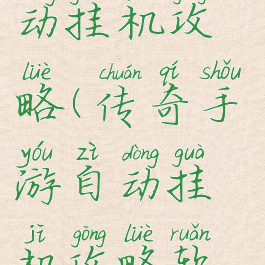 动挂机攻
lüè chuán qí shǒu
略(传奇手
yóu zì dòng guà
游自动挂
jī gōng lüè ruǎn
机攻略软